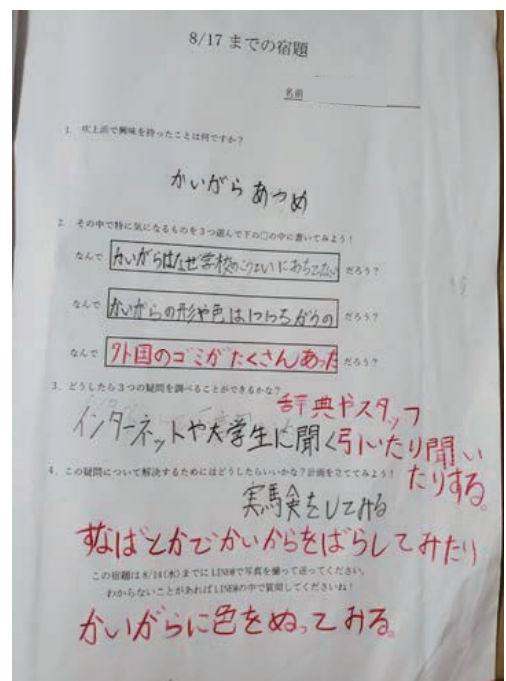 8/17 までの宿題
名前
1. 吹上浜で興味を持ったことは何ですか？
かいがらあつめ
2. その中で特に気になるものを3つ選んで下の□の中に書いてみよう！
なんで かいがらはなぜ学校の におちてない だろう？
なんで かいがらの形や色は1つ1つちがうの だろう？
なんで 外国のゴミがたくさんあった だろう？
3. どうしたら3つの疑問を調べることができるかな？
辞典やスタッフ
インターネットや大学生に聞く引いたり聞い
たりする。
4. この疑問について解決するためにはどうしたらいいかな？計画を立ててみよう！
実験をしてみる
すなばとかでかいがらをばらしてみたり
この宿題は 8/14(水)までに LINE@で写真を撮って送ってください。
わからないことがあれば LINE@の中で質問してくださいね！
かいがらに色をぬってみる。